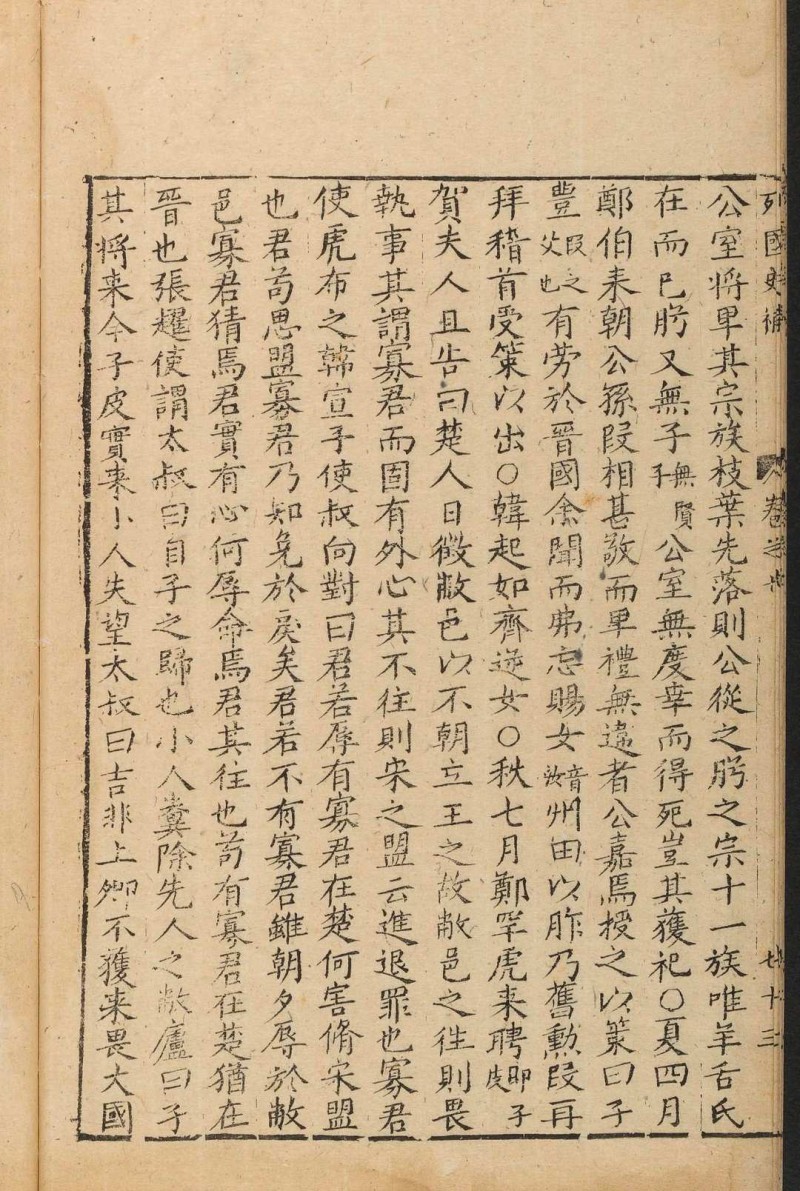 列國史補 卷之 七十三
公室将卑其宗族枝葉先落則公從之肹之宗十一族唯羊舌氏
在而已肹又無子無賢子公室無度幸而得死豈其獲祀○夏四月
鄭伯来朝公孫段相甚敬而卑禮無違者公嘉焉授之以策曰子
豐段之父也有劳於晋國余聞而弗忘賜女音汝州田以胙乃舊勲段再
拜稽首受策以出○韓起如齊逆女○秋七月鄭罕虎来聘即子皮
賀夫人且告曰楚人日徵敝邑以不朝立王之故敝邑之徃則畏
執事其謂寡君而固有外心其不徃則宋之盟云進退罪也寡君
使虎布之韓宣子使叔向對曰君若辱有寡君在楚何害脩宋盟
也君苟思盟寡君乃知免於戾矣君若不有寡君雖朝夕辱於敝
邑寡君猜焉君實有心何辱命焉君其往也苟有寡君在楚猶在
晋也張趯使謂太叔曰自子之歸也小人糞除先人之敝廬曰子
其将来今子皮實来小人失望太叔曰吉非上卿不獲来畏大國